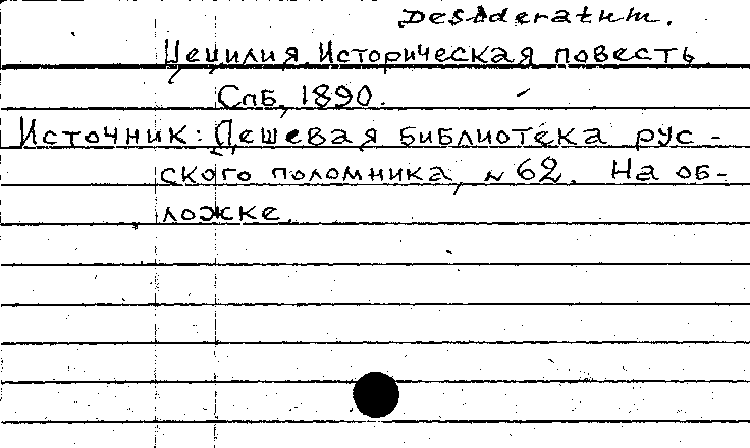 Desideratum.
Цецилия. Историческая повесть.
Спб, 1890.
Источник: Дешевая библиотека рус-
ского поломника, № 62. На об-
ложке.